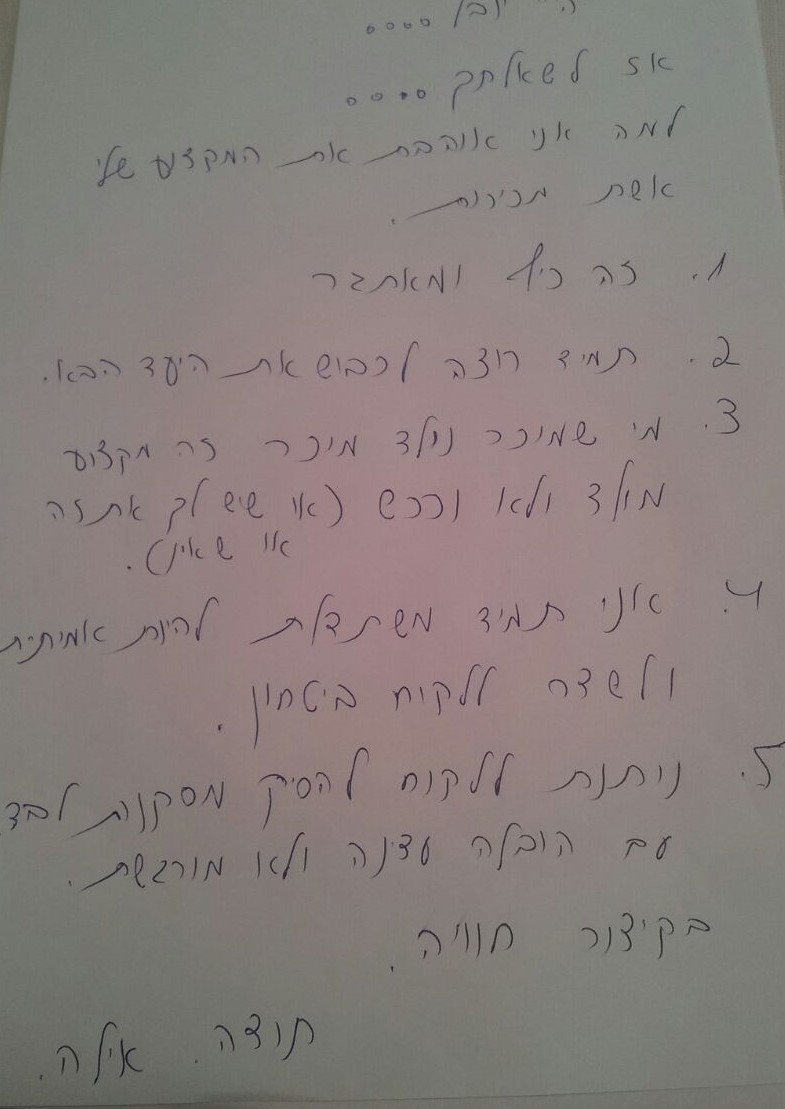 אז לשאלתך ....
למה אני אוהבת את המקצוע שלי
אשת מכירות.
1. זה כיף ומאתגר
2. תמיד רוצה לכבוש את היעד הבא.
3. מי שמיכר נולד מיכר זה מקצוע
מולד ולא נרכש (או שיש לך את זה
או שאין).
4. אני תמיד משתדלת להיות אמיתית
ולשדר ללקוח ביטחון.
5. נותנת ללקוח להסיק מסקנות לבד
עם הובלה עדינה ולא מורגשת.
בקיצור חוויה.
תודה. אילה.